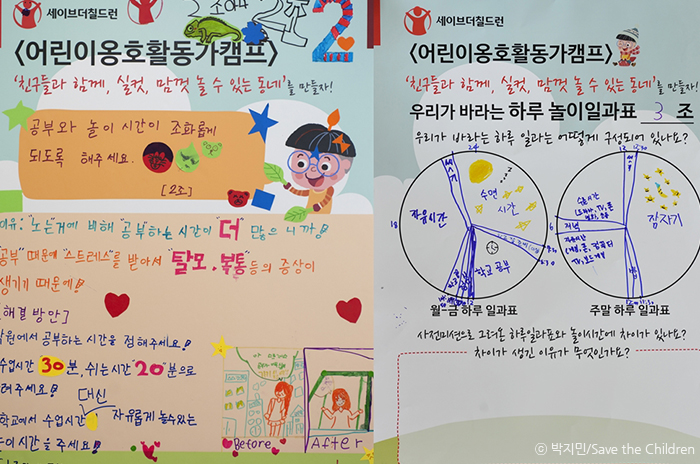 세이브더칠드런
2조
2
<어린이옹호활동가캠프>
'친구들과 함께, 실컷, 맘껏 놀 수 있는 동네'를 만들자!
공부와 놀이 시간이 조화롭게
되도록 해주세요.
[2조]
이유: "노는"거에 비해 "공부"하는 시간이 "더" 많으니까!
"공부" 때문에 "스트레스"를 받아서 "탈모, 복통" 등의 증상이
생기기 때문에!
해결 방안]
학원에서 공부하는 시간을 정해주세요!
수업시간 "30"분, 쉬는시간 "20"분으로
해주세요!
대신
학교에서 수업시간 자유롭게 놀수있는
놀이시간을 주세요!
Before
After
세이브더칠드런
<어린이옹호활동가캠프>
'친구들과 함께, 실컷, 맘껏 놀 수 있는 동네'를 만들자!
우리가 바라는 하루 놀이일과표 3 조
우리가 바라는 하루 일과는 어떻게 구성되어 있나요?
24
자유시간
수면
시간
18
6
학교 공부
월~금 하루 일과표
12
잠자기
저녁
자유시간
주말 하루 일과표
사전미션으로 그려온 하루일과표와 놀이시간에 차이가 있나요?
차이가 생긴 이유가 무엇인가요?
© 박지민/Save the Children